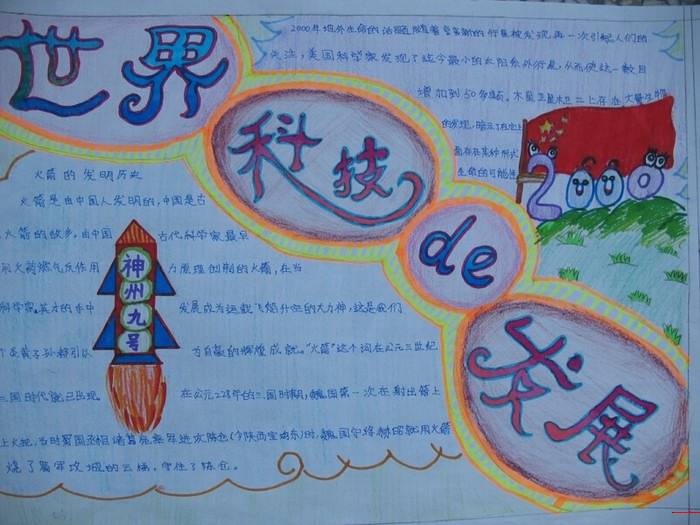 世界
科技
de
发展
2000年地外生命的话题随着曼多新的行星被发现再一次引起人们的
关注，美国科学家发现了迄今最小的太阳系外行星，从而使这一数目
增加到50多颗。木星卫星木卫二上存在大量生物
的发现，暗示了在地上
面存在某种形式
生命的可能性
2000
火箭的发明历史
火箭是由中国人发明的，中国是古
火箭的故乡，由中国古代科学家最早
火药燃气反作用力原理创制的火箭，在当
科学家。英才的手中发展成为运载飞船升空的大力神，这是我们
个炎黄子孙都引以为自豪的辉煌成就。"火箭"这个词在公元三世纪
三国时代就已出现。在公元228年的三国时期，魏国第一次在射出箭上
上火把，当时蜀国丞相诸葛亮率军进攻陈仓(今陕西宝鸡东)时，魏国守将郝昭就用火箭
烧了蜀军攻城的云梯，守住了陈仓。
神州九号